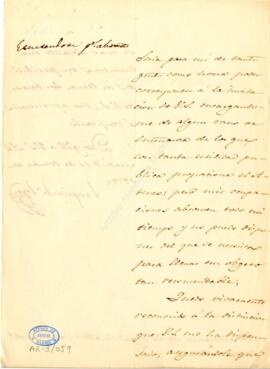 Seria para mi de tanto
gusto como honor poder
corresponder á la invita
cion de V.S. encargando
me de algun ramo de
enseñanza de los que
con tanta utilidad
publica proporciona el
Ateneo: pero mis ocupa
ciones absorven todo mi
tiempo y no puedo dispo
ner del que se necesita
para llenar un objeto
tan recomendable.
Quedo vivamente
reconocido á la distincion
que V.S. me ha dispen
sado, asegurandole que
AR-5/059